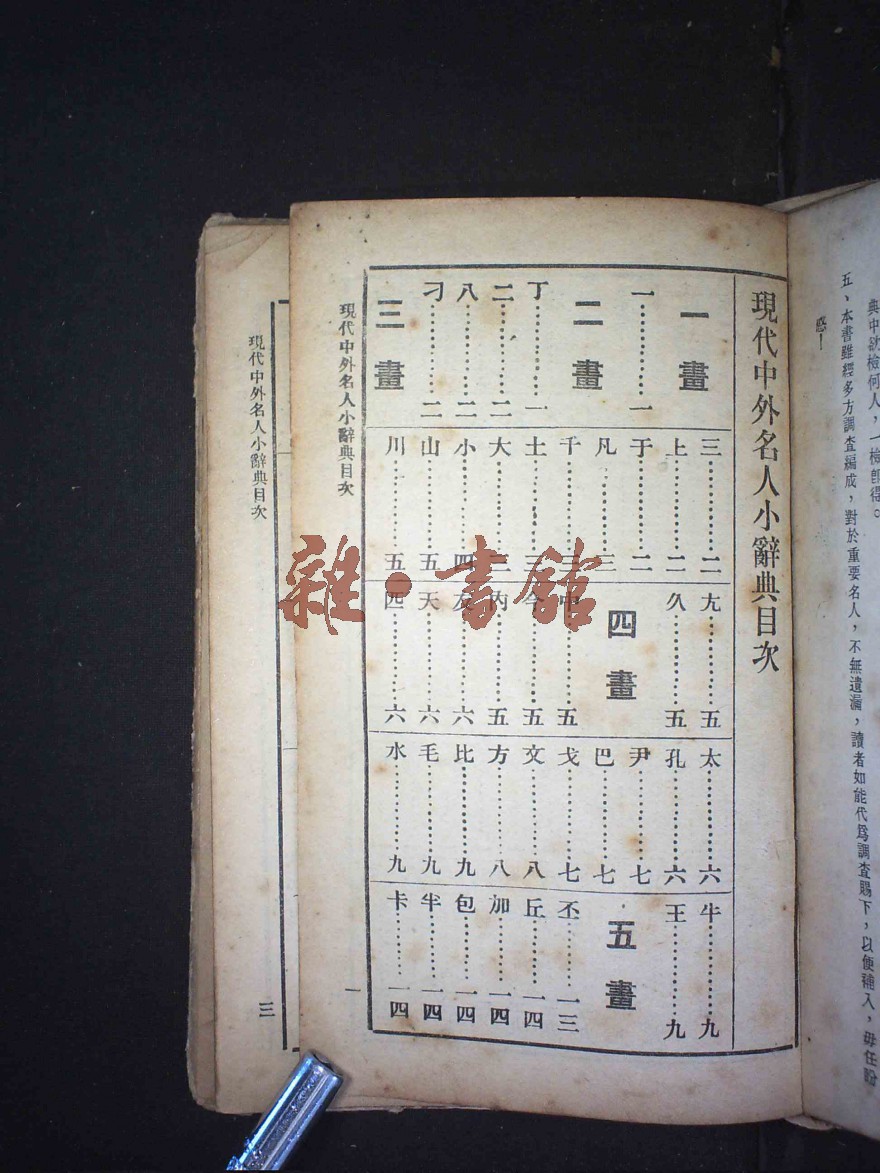 典中欲檢何人，一檢卽得。
五、本書雖經多方調查編成，對於重要名人，不無遺漏，讀者如能代爲調查賜下，以便補入，毋任
感！
現代中外名人小辭典目次
一畫
一…………一
二畫
丁…………一
二…………二
八…………二
刁…………二
三畫
三…………二
上…………二
于…………二
凡…………三
千…………三
土…………三
大…………三
小…………四
山…………五
川…………五
九…………五
久…………五
四畫
中…………五
今…………五
內…………五
友…………六
天…………六
匹…………六
太…………六
孔…………六
尹…………七
巴…………七
戈…………七
文…………八
方…………八
比…………九
毛…………九
水…………九
牛…………九
王…………九
五畫
丕…………一三
丘…………一四
加…………一四
包…………一四
半…………一四
卡…………一四
現代中外名人小辭典目次
一
現代中外名人小辭典目次
三
雜·書館